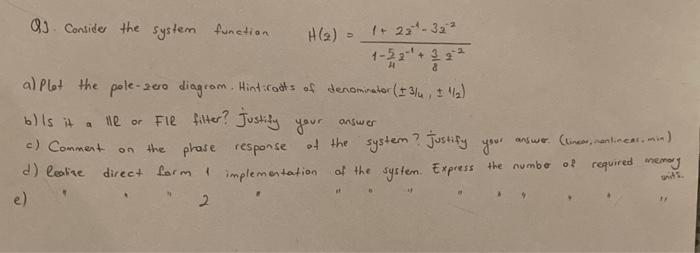 Q3. Consider the system function H(z) = 1 + 2z⁻¹ - 3z⁻² / 1 - 5/4 z⁻¹ + 3/8 z⁻²
a) Plot the pole-zero diagram. Hint: roots of denominator (± 3/4, ± 1/2)
b) Is it a IIR or FIR filter? Justify your answer
c) Comment on the phase response of the system? Justify your answer. (linear, nonlinear, min)
d) Realize direct form 1 implementation of the system. Express the number of required memory units.
e) " " " 2 " " " " " " " " " "